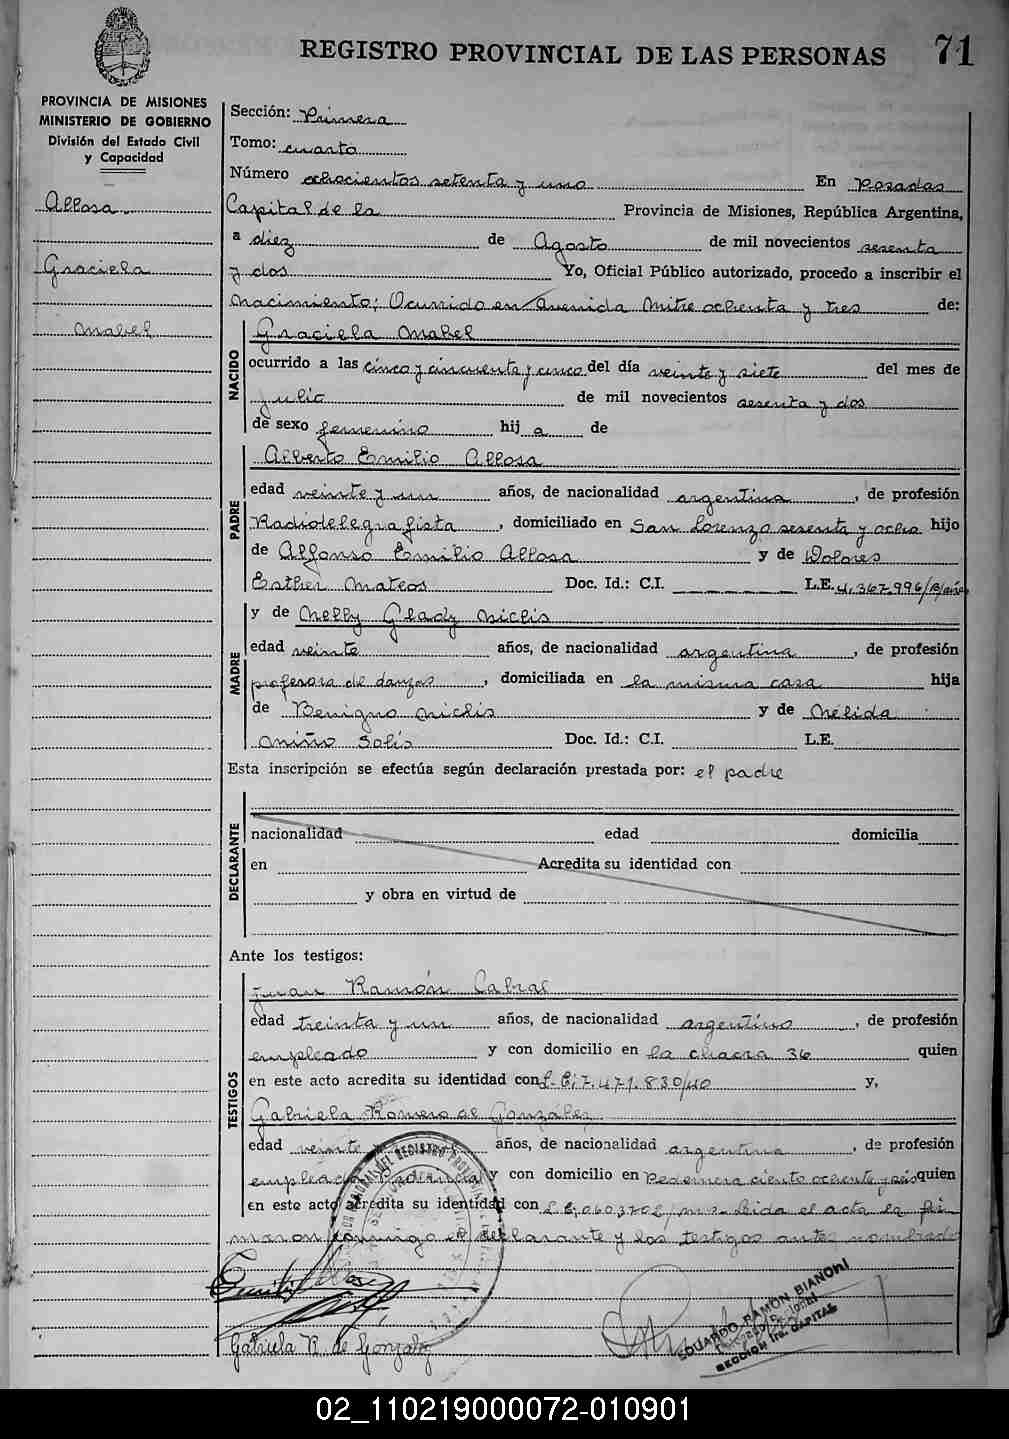 REGISTRO PROVINCIAL DE LAS PERSONAS 71
PROVINCIA DE MISIONES
MINISTERIO DE GOBIERNO
División del Estado Civil
y Capacidad
Allosa
Graciela
Mabel
Sección: Primera
Tomo: cuarto
Número ochocientos setenta y uno En Posadas
Capital de la Provincia de Misiones, República Argentina,
a diez de Agosto de mil novecientos sesenta
y dos Yo, Oficial Público autorizado, procedo a inscribir el
Nacimiento; Ocurrido en Avenida Mitre ochenta y tres de:
NACIDO
Graciela Mabel
ocurrido a las cinco y cincuenta y cinco del día veinte y siete del mes de
Julio de mil novecientos sesenta y dos
de sexo femenino hij a de
PADRE
Alberto Emilio Allosa
edad veinte y un años, de nacionalidad argentina, de profesión
Radiotelegrafista, domiciliado en San Lorenzo sesenta y ocho hijo
de Alfonso Emilio Allosa y de Dolores
Esther Mateos Doc. Id.: C.I. L.E. 4.367.996/B/aires
MADRE
y de Nelly Glady Niclis
edad veinte años, de nacionalidad argentina, de profesión
profesora de danzas, domiciliada en la misma casa hija
de Benigno Niclis y de Nélida
Niño Solís Doc. Id.: C.I. L.E.
Esta inscripción se efectúa según declaración prestada por: el padre
DECLARANTE
nacionalidad edad domicilia
en Acredita su identidad con
y obra en virtud de
Ante los testigos:
TESTIGOS
Juan Ramón Cabral
edad treinta y un años, de nacionalidad argentino, de profesión
empleado y con domicilio en la chacra 36 quien
en este acto acredita su identidad con L.E. 7.471.830/40 y,
Gabriela Romero de González
edad veinte años, de nacionalidad argentina, de profesión
y con domicilio en ciento ochenta y seis quien
en este acto acredita su identidad con Leida el acta la fir
maron conmigo el declarante y los testigos antes nombrado
Gabriela R. de Gonzalez
EDUARDO RAMON BIANCHI
SECCION 1ra. CAPITAL
02_110219000072-010901